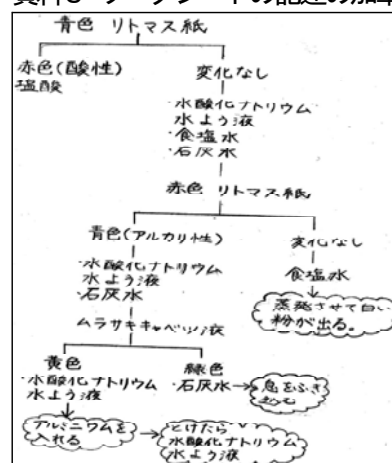 青色 リトマス紙
赤色(酸性)
塩酸
変化なし
・水酸化ナトリウム
水よう液
・食塩水
・石灰水
赤色 リトマス紙
青色(アルカリ性)
・水酸化ナトリウム
水よう液
・石灰水
変化なし
食塩水
蒸発させて白い
粉が出る。
ムラサキキャベツ液
黄色
・水酸化ナトリウム
水よう液
緑色
・石灰水
息をふき
アルミニウムを
入れる
とけたら
水酸化ナトリウム
水よう液